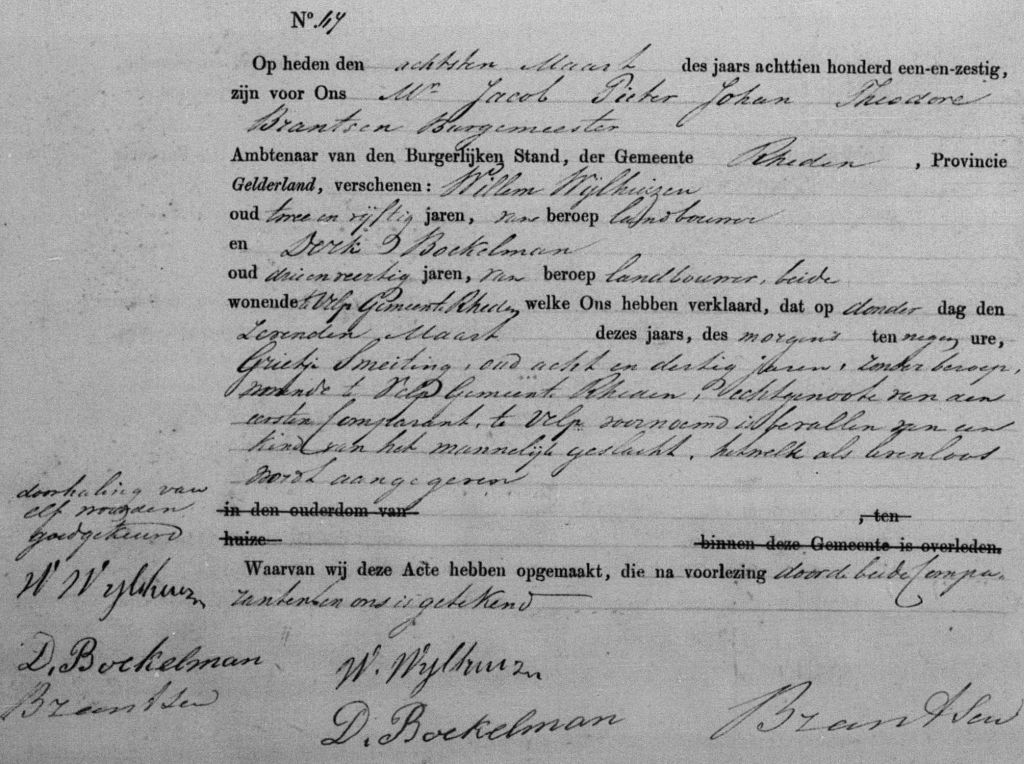 No. 47
Op heden den achtsten Maart des jaars achttien honderd een-en-zestig,
zijn voor Ons Mr Jacob Pieter Johan Theodore
Brantsen Burgemeester
Ambtenaar van den Burgerlijken Stand, der Gemeente Rheden, Provincie
Gelderland, verschenen: Willem Wijlhuizen
oud twee en vijftig jaren, van beroep landbouwer
en Derk Boekelman
oud drie en veertig jaren, van beroep landbouwer, beide
wonende te Velp Gemeente Rheden, welke Ons hebben verklaard, dat op donder dag den
zevenden Maart dezes jaars, des morgens ten negen ure,
Grietje Smeiting, oud acht en dertig jaren, zonder beroep,
wonende te Velp Gemeente Rheden, echtgenoote van den
eersten Comparant, te Velp voornoemd is bevallen van een
kind van het mannelijk geslacht, hetwelk als levenloos
wordt aangegeven
in den ouderdom van , ten
huize binnen deze Gemeente is overleden.
Waarvan wij deze Acte hebben opgemaakt, die na voorlezing door de beide Compa-
ranten en ons is getekend
doorhaling van
elf woorden
goedgekeurd
W Wylhuizn
D. Boekelman
Brantsen
W. Wylhuizn
D. Boekelman
Brantsen